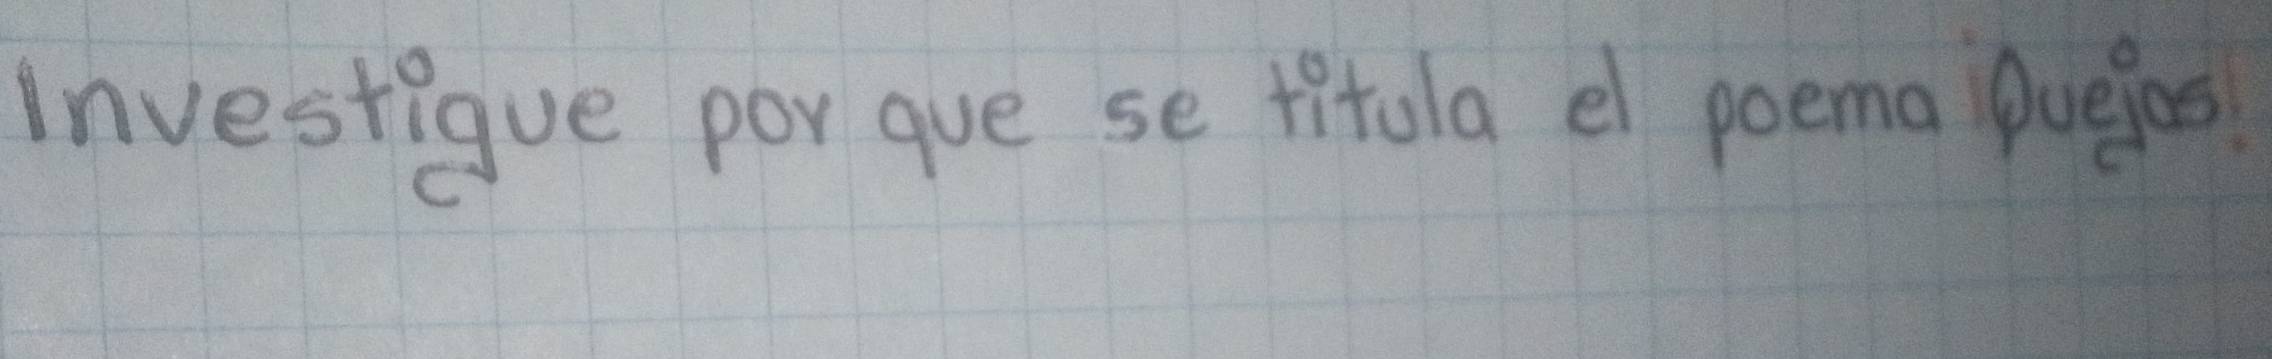 Investigue por que se titula el poema ¡Quejas!